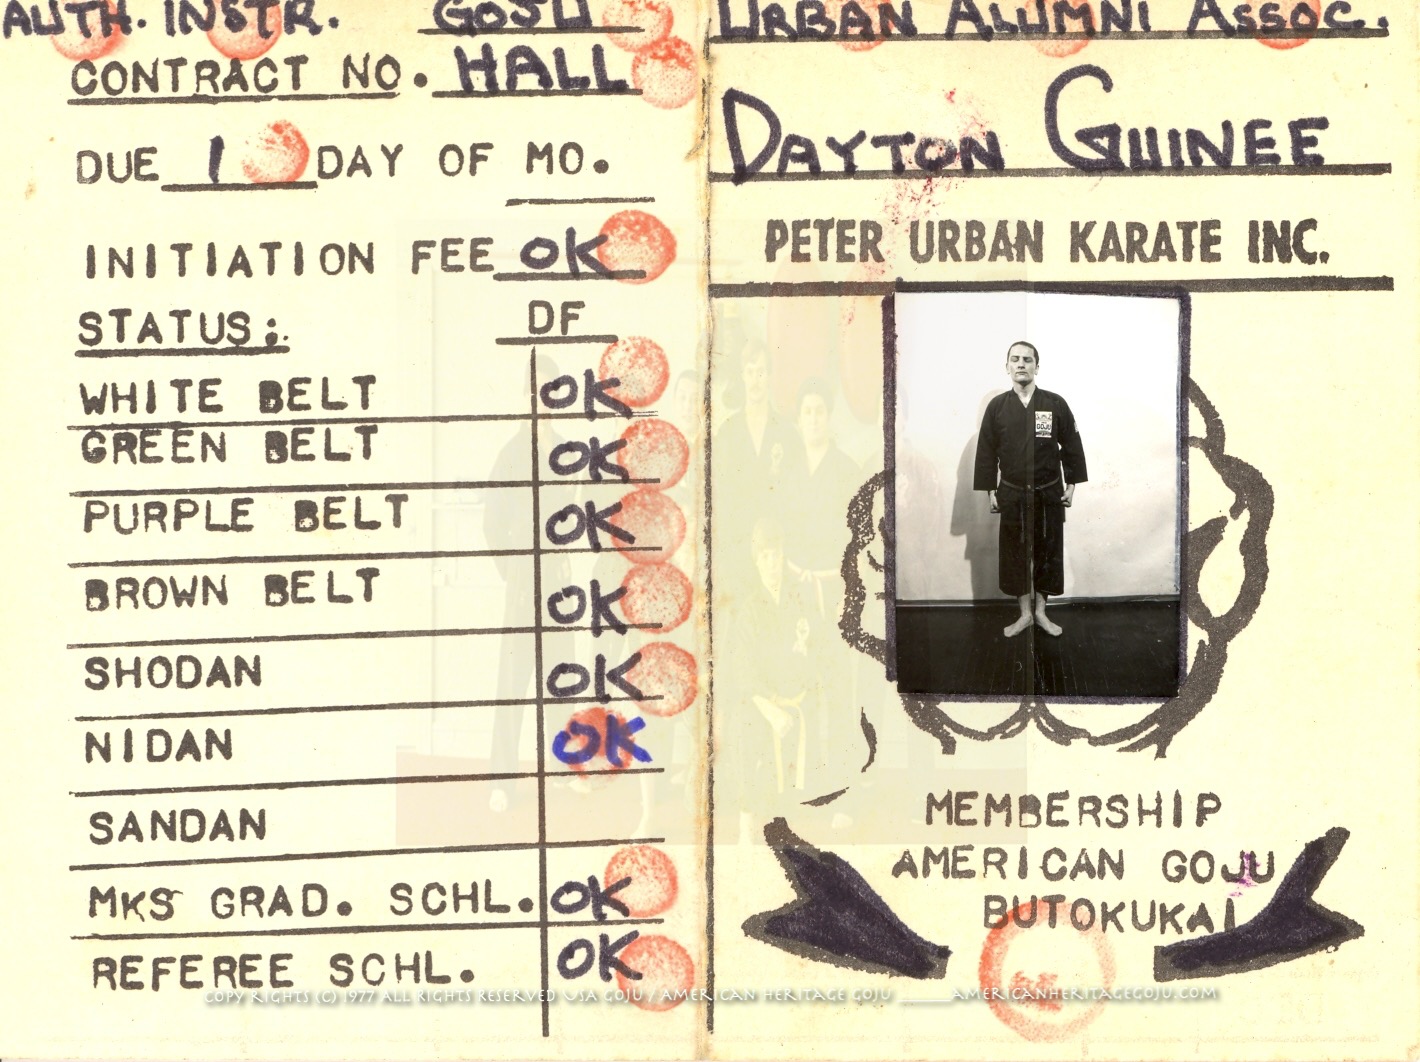 AUTH. INSTR. GOJU
CONTRACT NO. HALL
DUE 1 DAY OF MO.
INITIATION FEE OK
STATUS: DF
WHITE BELT OK
GREEN BELT OK
PURPLE BELT OK
BROWN BELT OK
SHODAN OK
NIDAN OK
SANDAN
MKS GRAD. SCHL. OK
REFEREE SCHL. OK
URBAN ALUMNI ASSOC.
DAYTON GUINEE
PETER URBAN KARATE INC.
GOJU
MEMBERSHIP
AMERICAN GOJU
BUTOKUKAI
COPY RIGHTS (C) 1977 ALL RIGHTS RESERVED USA GOJU / AMERICAN HERITAGE GOJU ______AMERICANHERITAGEGOJU.COM